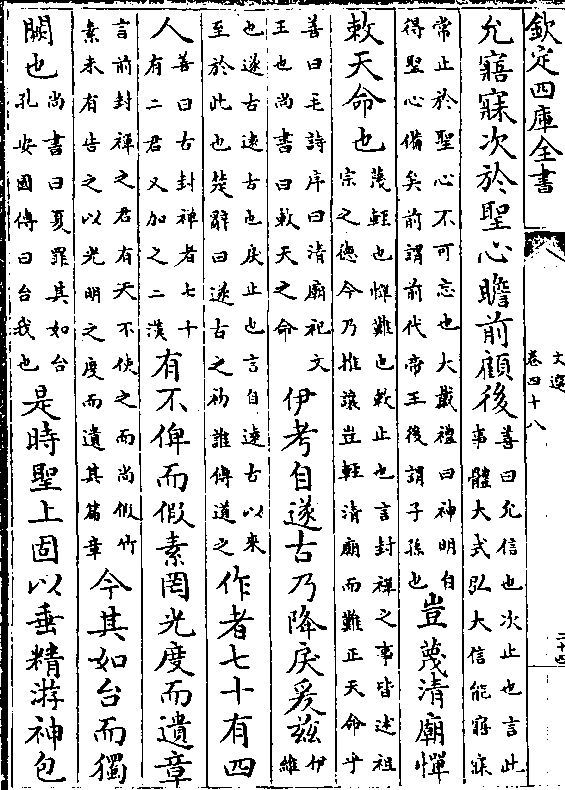 欽定四庫全書
文選
卷四十八
二十四
允寤寐次於聖心瞻前顧後善曰允信也次止也言此事體大式弘大信能寤寐
常止於聖心不可忘也大戴禮曰神明自得聖心備矣前謂前代帝王後謂子孫也豈蔑清廟憚
敕天命也蔑輕也憚難也敕止也言封禪之事皆述祖宗之德今乃推讓豈輕清廟而難正天命乎
善曰毛詩序曰清廟祀文王也尚書曰敕天之命伊考自遂古乃降戾爰茲伊維
也遂古遠古也戾止也言自遠古以來至於此也楚辭曰遂古之初誰傳道之作者七十有四
人善曰古封禪者七十有二君又加之二漢有不俾而假素罔光度而遺章
言前封禪之君有天不使之而尚假竹素未有告之以光明之度而遺其篇章今其如台而獨
闕也尚書曰夏罪其如台孔安國傳曰台我也是時聖上固以垂精游神包